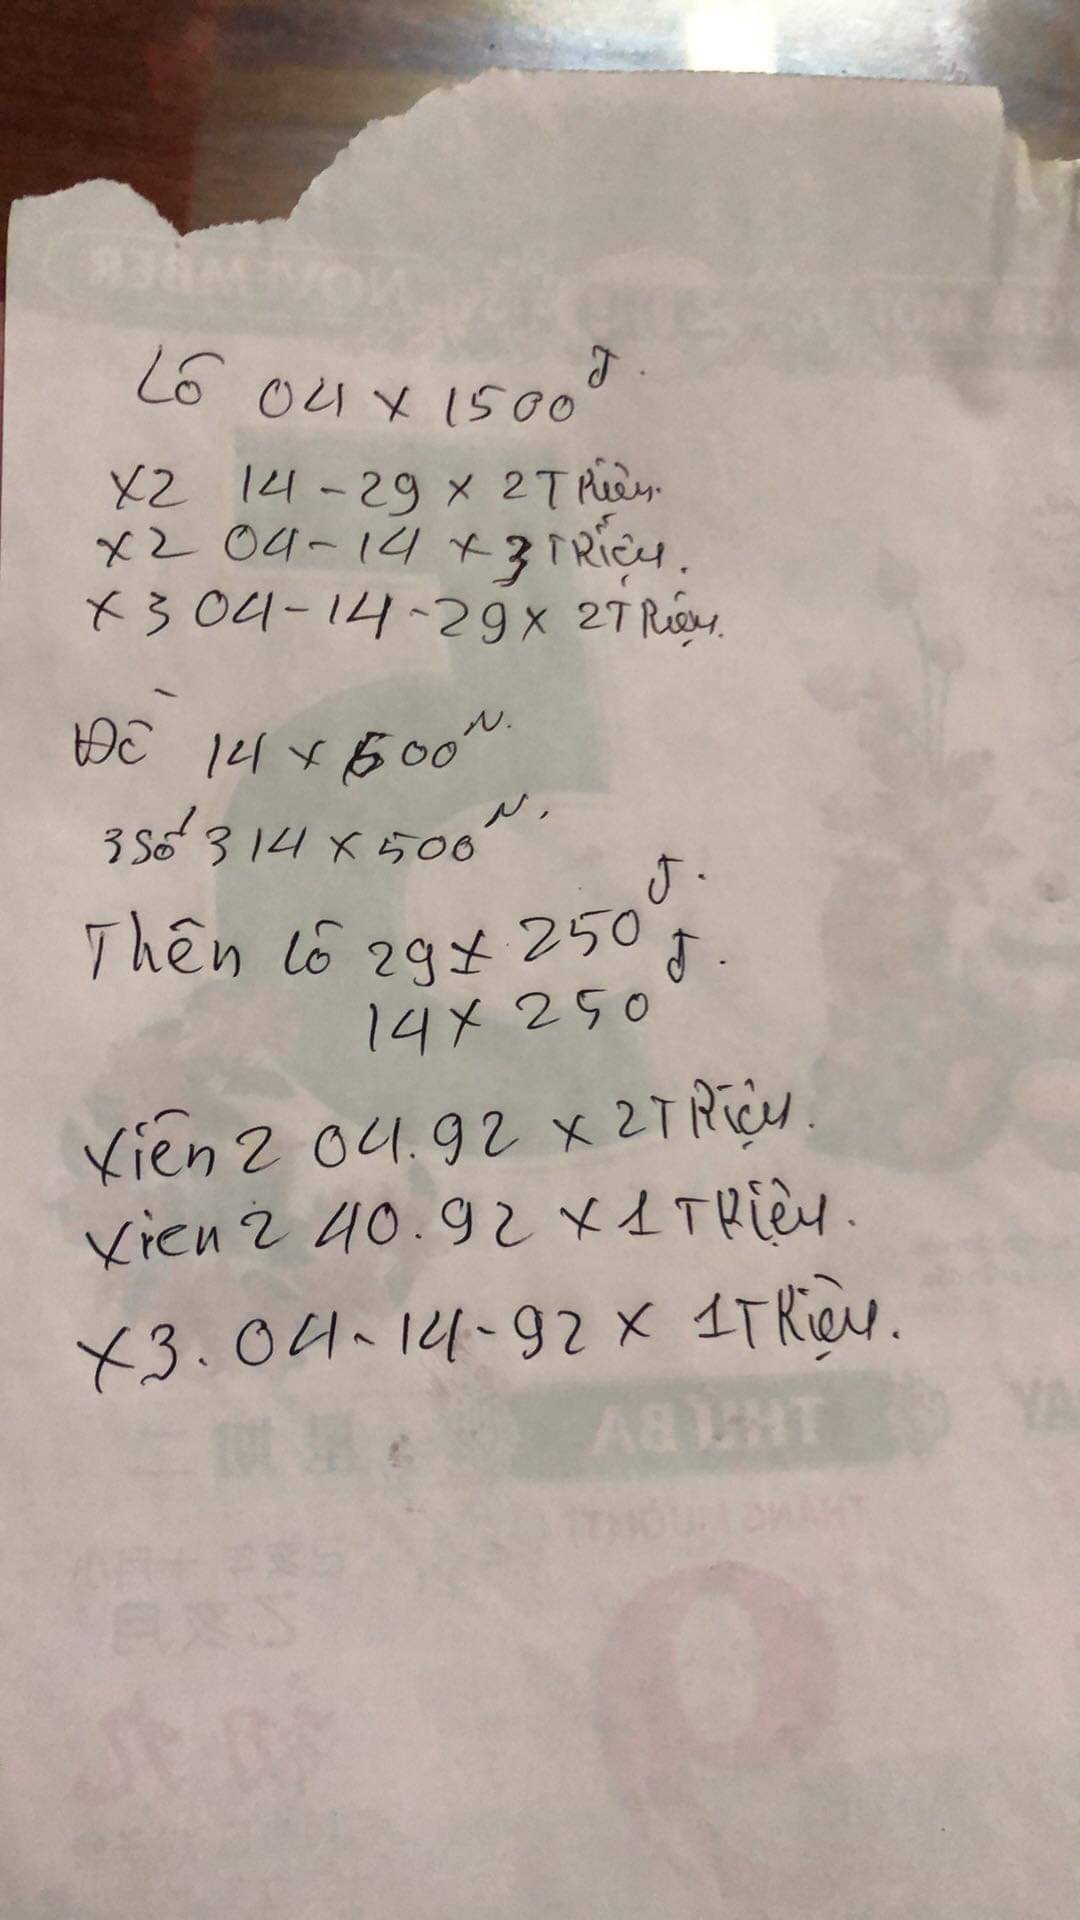 NOVEMBER
Lô 04 x 1500đ.
x2 14 - 29 x 2 Triệu.
x2 04 - 14 x 3 Triệu.
x3 04 - 14 - 29 x 2 Triệu.
Đề 14 x 500N.
3 Số 314 x 500N.
Thên lô 29 x 250đ.
14 x 250đ.
Xiên 2 04.92 x 2 Triệu.
Xien 2 40.92 x 1 Triệu.
x3. 04 - 14 - 92 x 1 Triệu.
THỨ BA
星期二
9